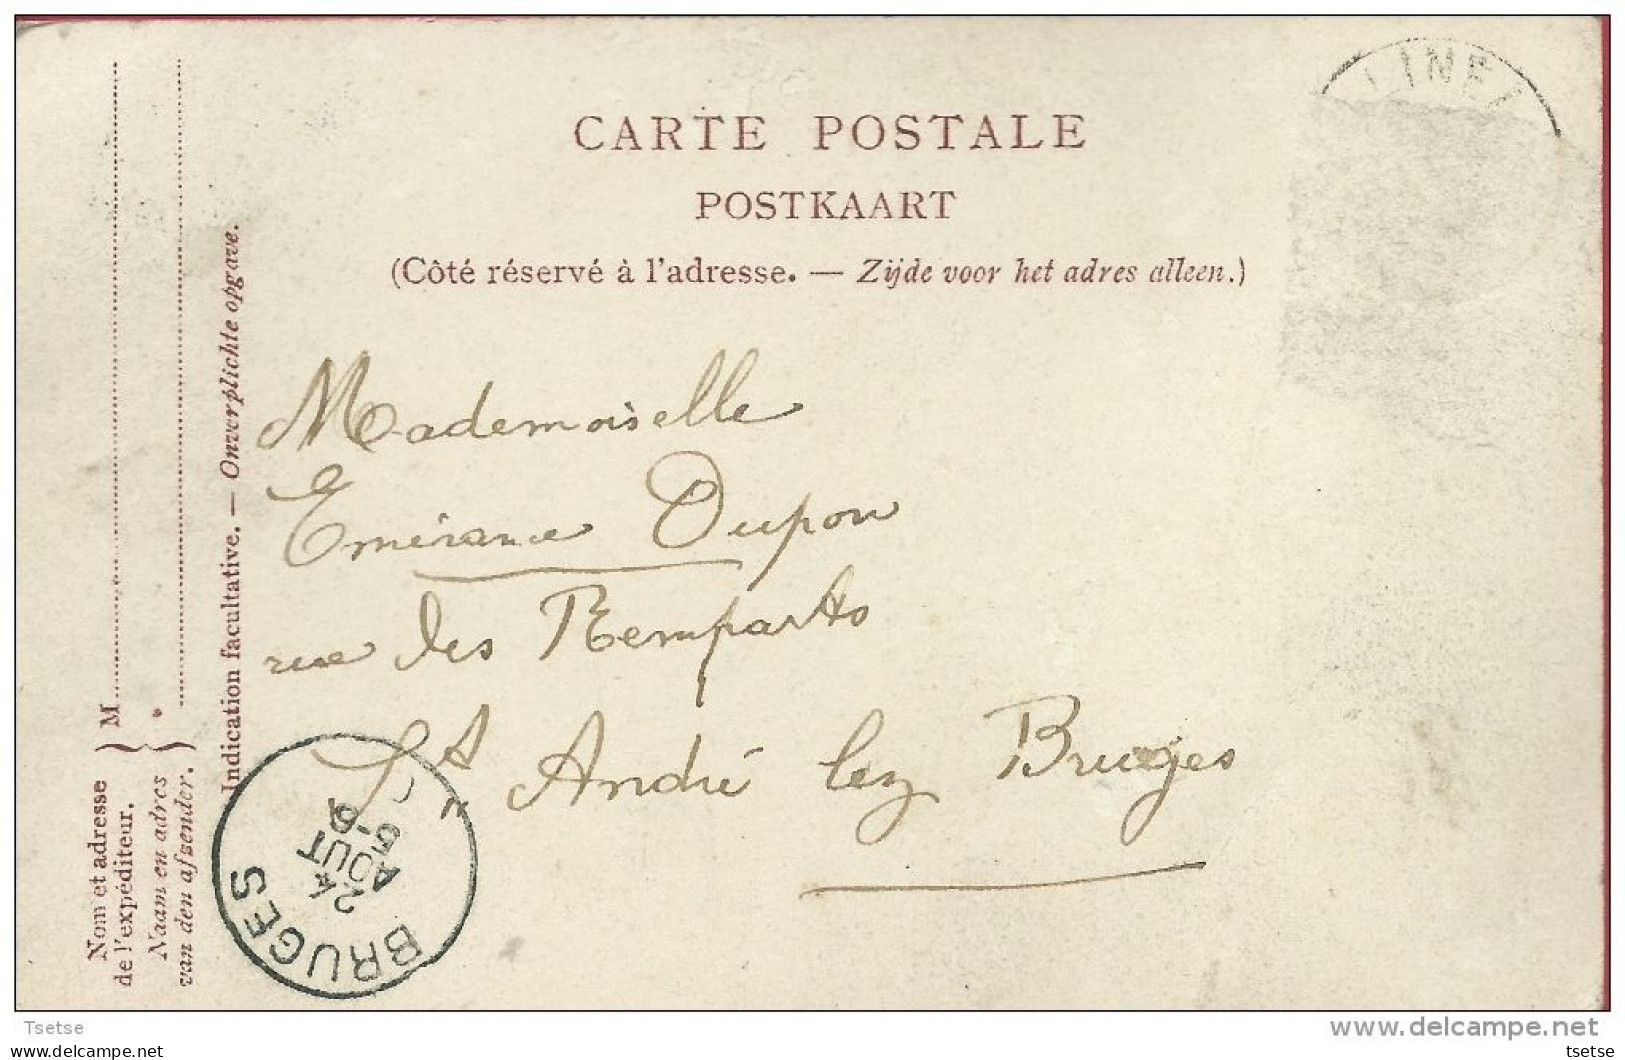 CARTE POSTALE
POSTKAART
(Côté réservé à l'adresse. — Zijde voor het adres alleen.)
Mademoiselle
Emérance Dupon
rue des Remparts
St André lez Bruges
Nom et adresse
de l'expéditeur.
Naam en adres
van den afzender.
M
Indication facultative. — Onverplichte opgave.
BRUGES
24
AOUT
5-6
LINE
Tsetse
delcampe.net
tsetse
www.delcampe.net